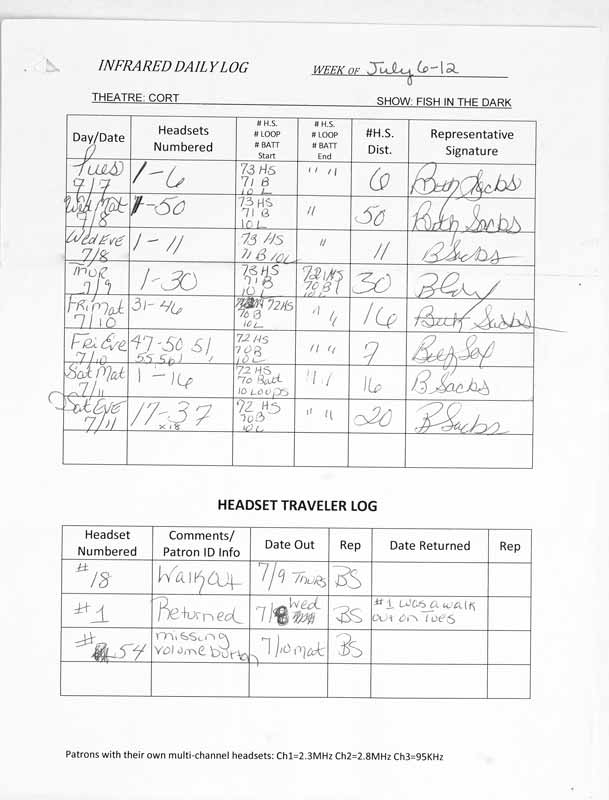 INFRARED DAILY LOG WEEK OF July 6-12
THEATRE: CORT SHOW: FISH IN THE DARK
Day/Date Headsets Numbered # H.S. # LOOP # BATT Start # H.S. # LOOP # BATT End #H.S. Dist. Representative Signature
Tues 7/7 1-6 73 HS 71 B 10 L " " 6 Beth Sacks
Wed Mat 7/8 1-50 73 HS 71 B 10 L " 50 Beth Sacks
Wed EVE 7/8 1-11 73 HS 71 B 10L " 11 B Sacks
Thur 7/9 1-30 73 HS 71 B 10 L 72 HS 70 B 10 L 30
Fri Mat 7/10 31-46 72 HS 70 B 10 L " " 16 Beth Sacks
Fri Eve 7/10 47-50 51, 55, 56 72 HS 70 B 10 L " " 7
Sat Mat 7/11 1-16 72 HS 70 Batt 10 Loops " " 16 B Sacks
Sat EVE 7/11 17-37 x18 72 HS 70 B 10 L " " 20 B Sacks
HEADSET TRAVELER LOG
Headset Numbered Comments/ Patron ID Info Date Out Rep Date Returned Rep
# 18 Walkout 7/9 Thurs BS
# 1 Returned 7/8 Wed BS #1 was a walk out on Tues
# 54 missing volume button 7/10 mat BS
Patrons with their own multi-channel headsets: Ch1=2.3MHz Ch2=2.8MHz Ch3=95KHz